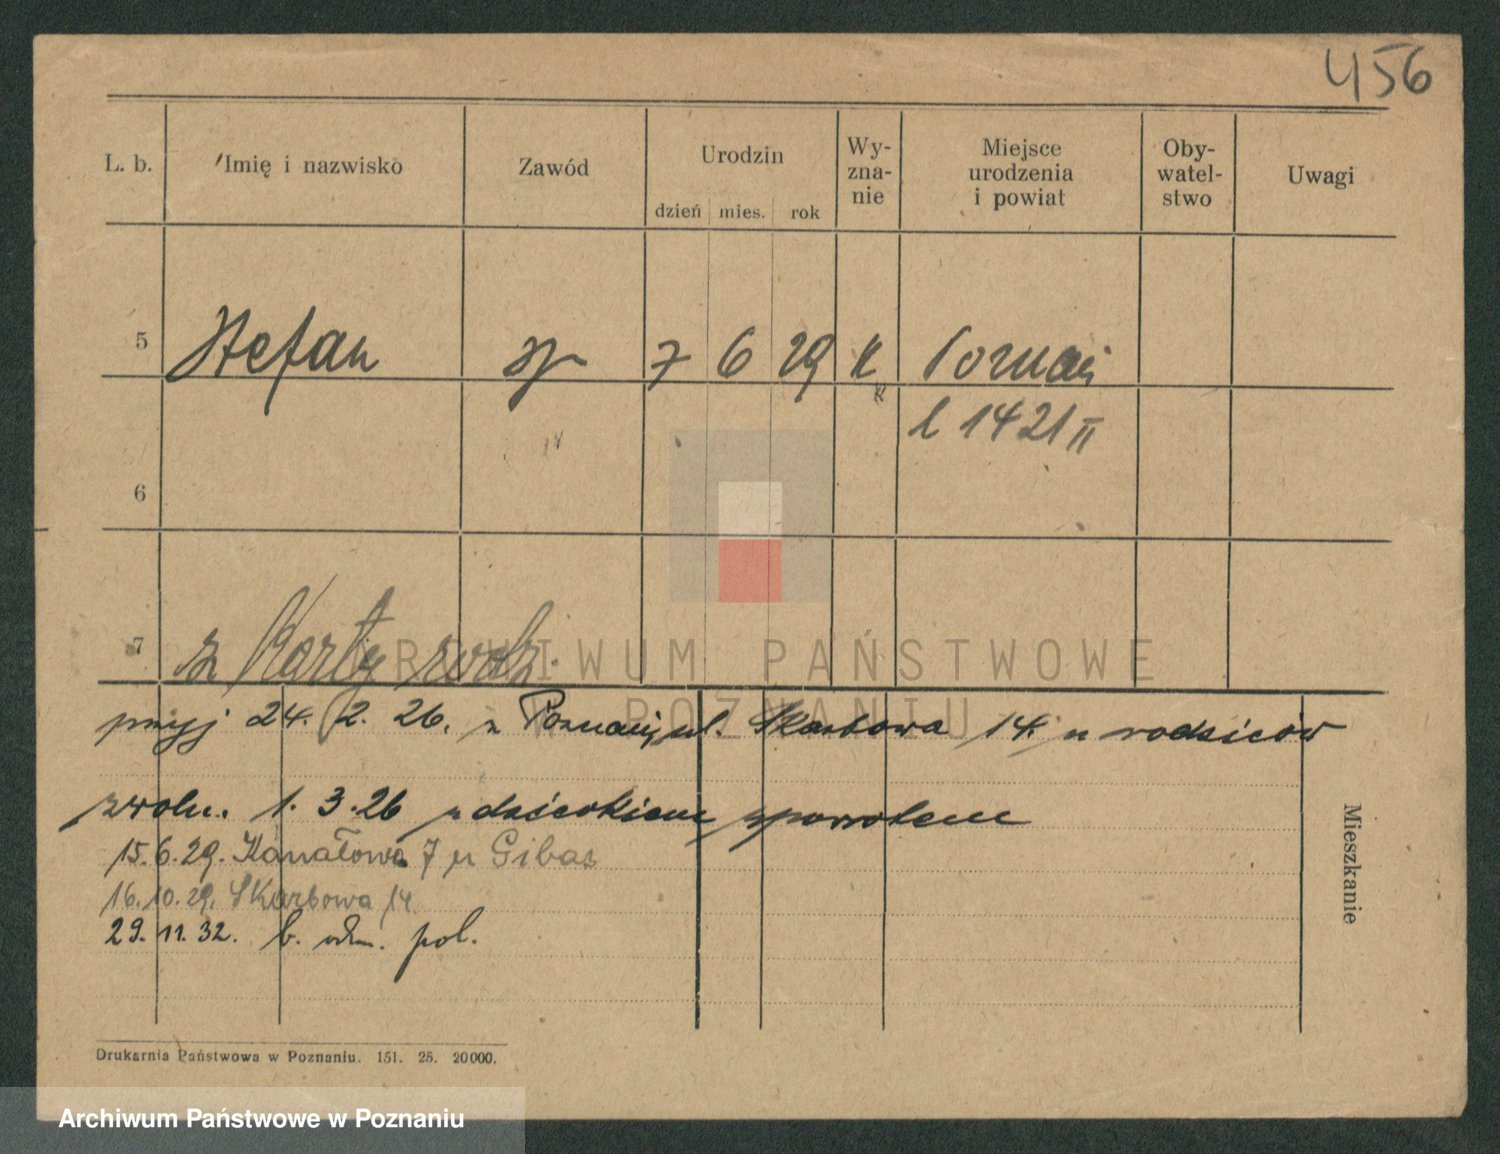 456
L. b. Imię i nazwisko Zawód Urodzin dzień mies. rok Wy-zna-nie Miejsce urodzenia i powiat Oby-watel-stwo Uwagi
5 Stefan 7 6 29 k Poznań
l 1421 II
6
7 z Karty rodz.
ARCHIWUM PAŃSTWOWE
POZNANIU
przyj 24. 2. 26. z Poznania, ul. Skarbowa 14. u rodziców
zwoln. 1. 3. 26 z dzieckiem zpowrotem
15. 6. 29. Kanałowa 7 u Gibas
16. 10. 29. Skarbowa 14
29. 11. 32. b. odm. pol.
Mieszkanie
Drukarnia Państwowa w Poznaniu. 151. 25. 20000.
Archiwum Państwowe w Poznaniu